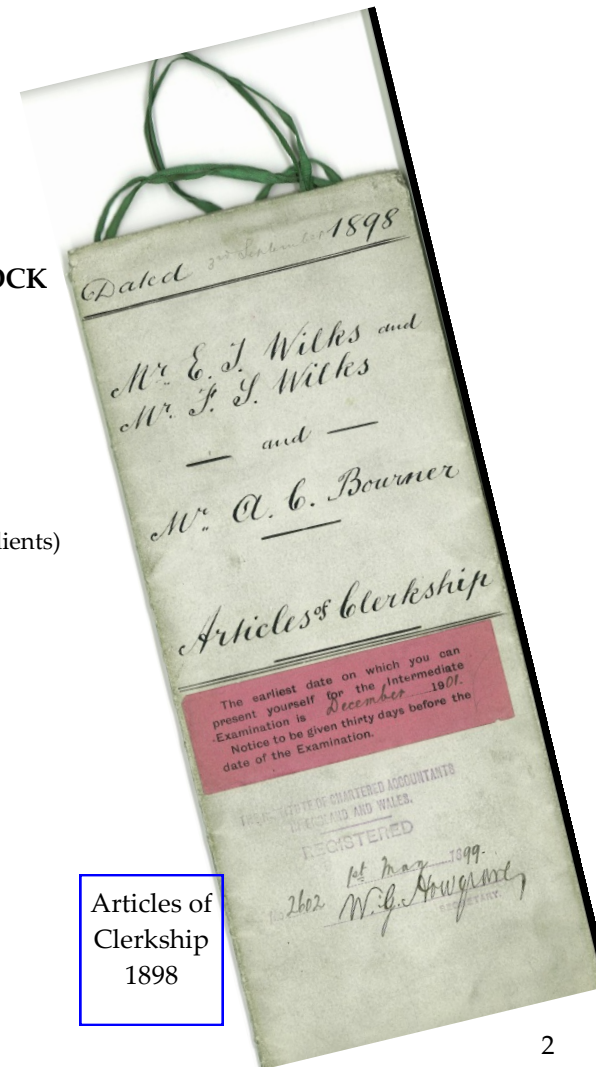 OCK
lients)
Dated 3rd September 1898
Mr. E. J. Wilks and
Mr. F. S. Wilks
and
Mr. A. C. Bourner
Articles of Clerkship
The earliest date on which you can
present yourself for the Intermediate
Examination is December 1901.
Notice to be given thirty days before the
date of the Examination.
INSTITUTE OF CHARTERED ACCOUNTANTS
ENGLAND AND WALES.
REGISTERED
1st May 1899.
No 2602 W. G. Howgrave
SECRETARY.
Articles of
Clerkship
1898
2